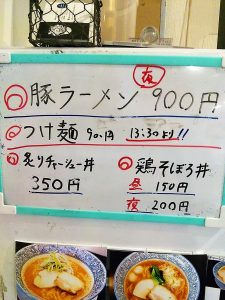 夜
豚ラーメン 900円
つけ麺 900円 13:30より!!
炙りチャーシュー丼
350円
鶏そぼろ丼
昼 150円
夜 200円